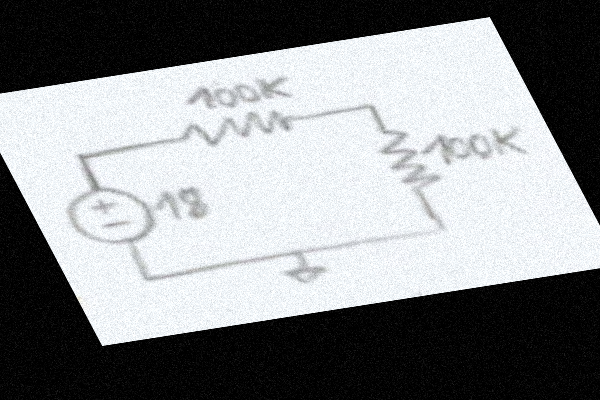 100K
100K
18
+
-